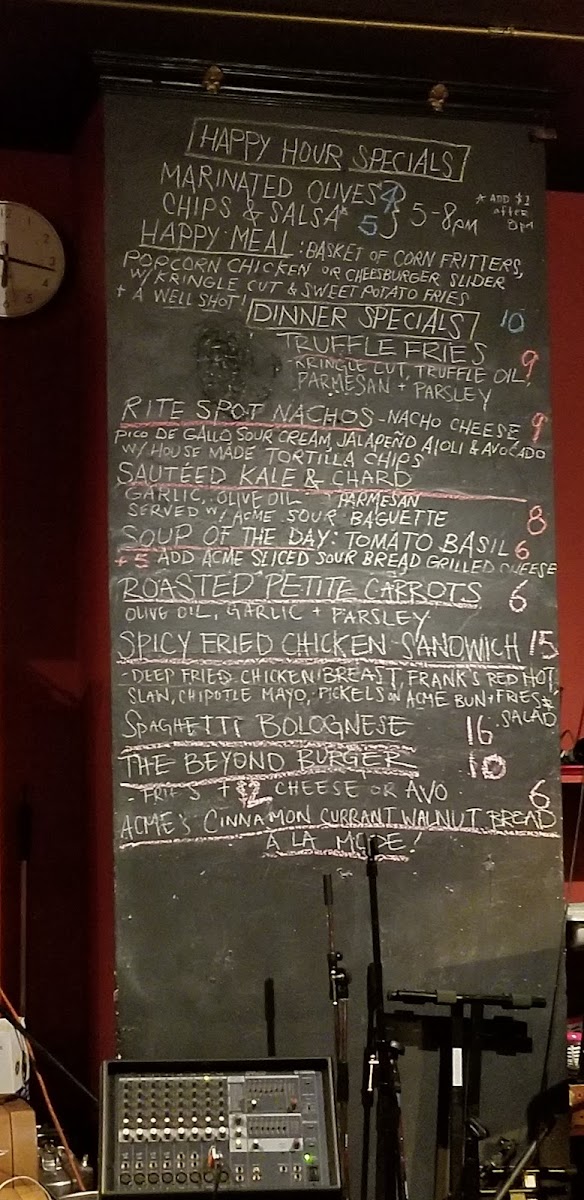 HAPPY HOUR SPECIALS
MARINATED OLIVES 4
CHIPS & SALSA* 5 } 5-8PM
* ADD $1
after
8PM
HAPPY MEAL: BASKET OF CORN FRITTERS,
POPCORN CHICKEN OR CHEESBURGER SLIDER
W/ KRINGLE CUT & SWEET POTATO FRIES
+ A WELL SHOT! 10
DINNER SPECIALS
TRUFFLE FRIES 9
KRINGLE CUT, TRUFFLE OIL,
PARMESAN + PARSLEY
RITE SPOT NACHOS - NACHO CHEESE 9
PICO DE GALLO, SOUR CREAM, JALAPEÑO AIOLI & AVOCADO
W/ HOUSE MADE TORTILLA CHIPS
SAUTÉED KALE & CHARD
GARLIC, OLIVE OIL + PARMESAN
SERVED W/ ACME SOUR BAGUETTE 8
SOUP OF THE DAY: TOMATO BASIL 6
+5 ADD ACME SLICED SOUR BREAD GRILLED CHEESE
ROASTED PETITE CARROTS 6
OLIVE OIL, GARLIC + PARSLEY
SPICY FRIED CHICKEN SANDWICH 15
- DEEP FRIED CHICKEN BREAST, FRANK'S RED HOT,
SLAW, CHIPOTLE MAYO, PICKELS ON ACME BUN + FRIES
SALAD
SPAGHETTI BOLOGNESE 16
THE BEYOND BURGER 10
- FRIES + $2 CHEESE OR AVO
ACME'S CINNAMON CURRANT WALNUT BREAD 6
À LA MODE!